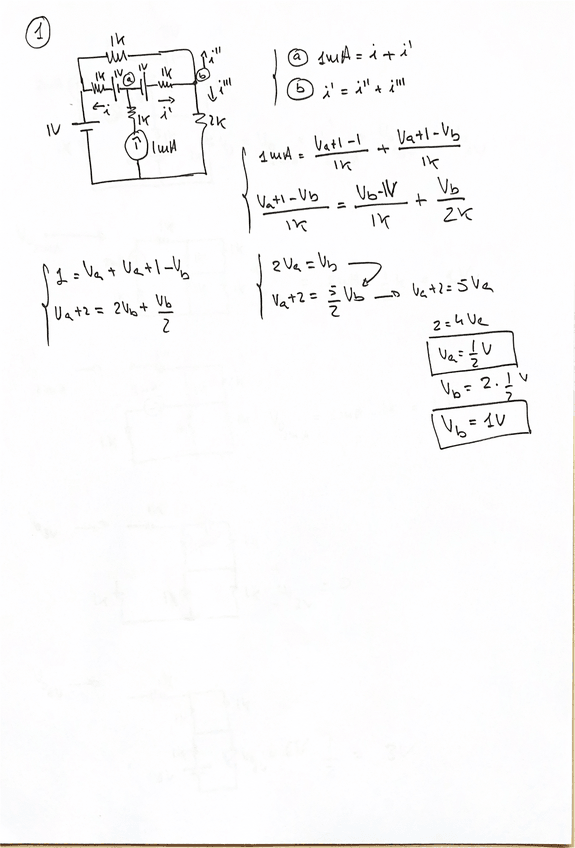 1
1K
1K 1V a 1V 1K b i''
i i' i'''
1V 1K 2K
i 1mA
a 1mA = i + i'
b i' = i'' + i'''
1mA = (Va+1-1)/1K + (Va+1-Vb)/1K
(Va+1-Vb)/1K = (Vb-1V)/1K + Vb/2K
1 = Va + Va+1-Vb
Va+2 = 2Vb + Vb/2
2Va = Vb
Va+2 = 5/2 Vb → Va+2 = 5Va
2 = 4Va
Va = 1/2 V
Vb = 2 · 1/2 V
Vb = 1V